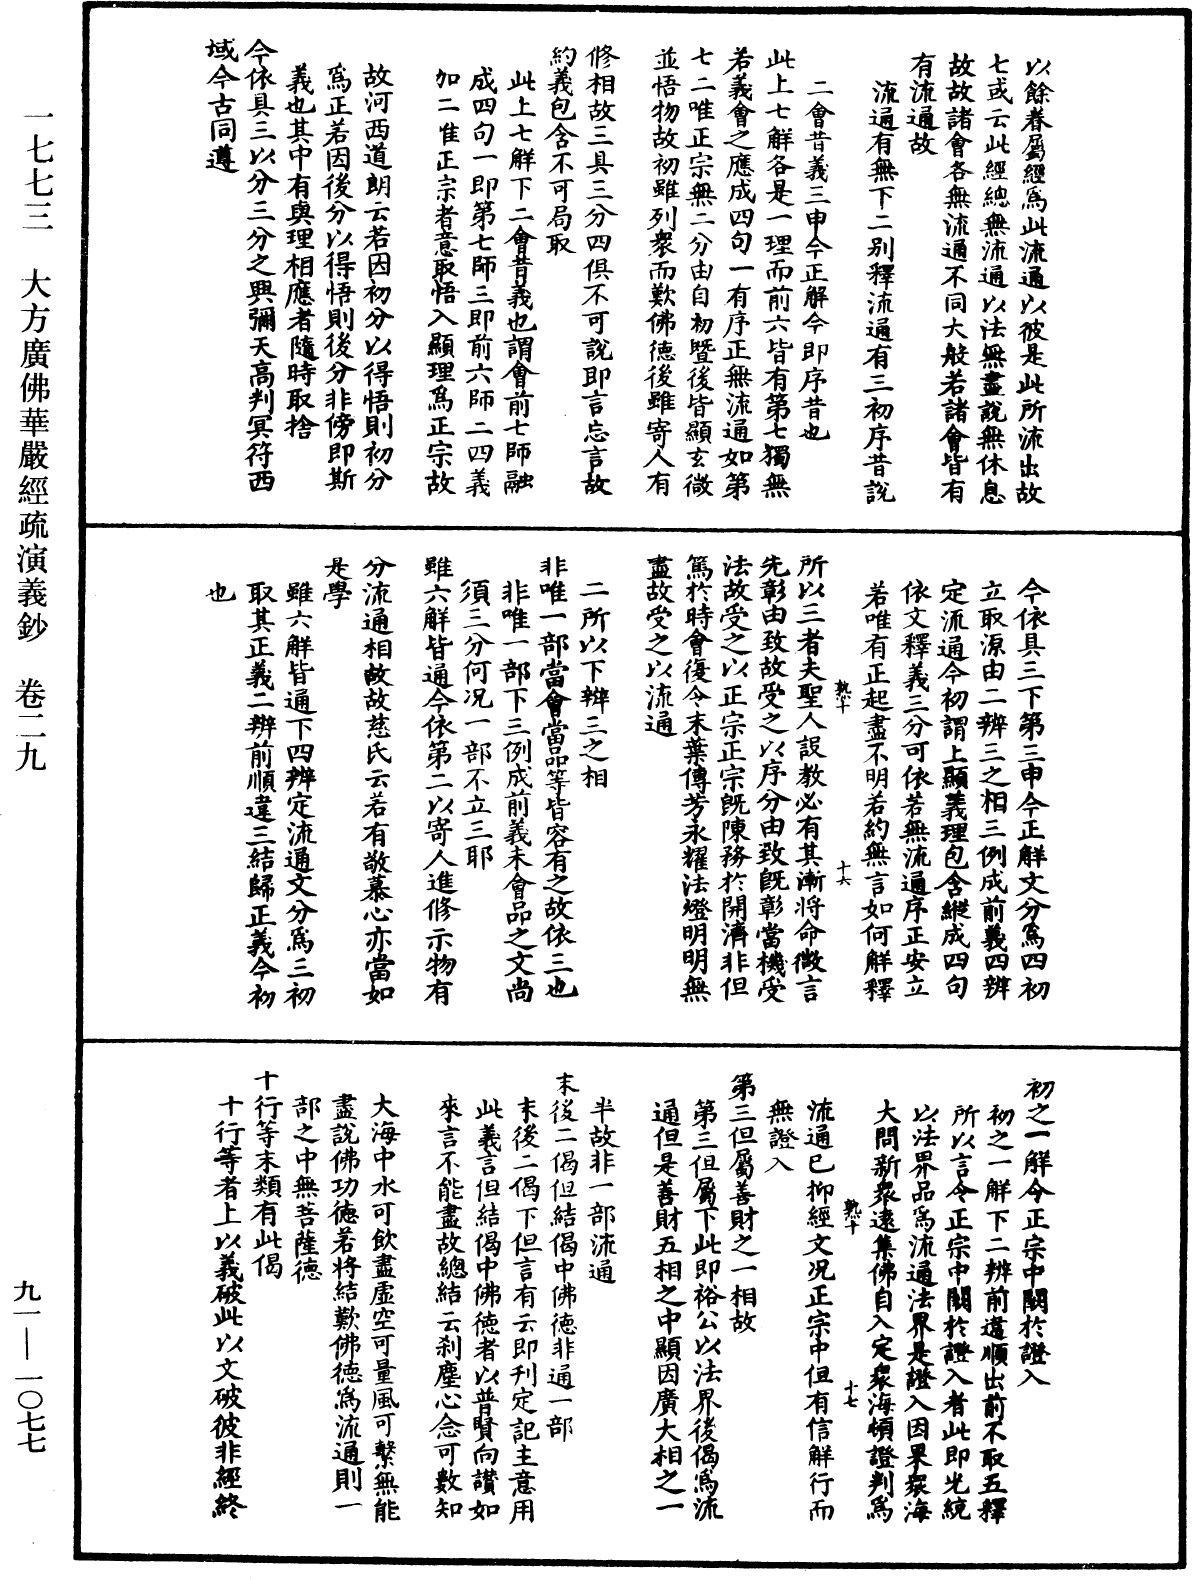 以餘眷屬經爲此流通以彼是此所流出故
七或云此經總無流通以法無盡說無休息
故故諸會各無流通不同大般若諸會皆有
有流通故
流通有無下二別釋流通有三初序昔說
二會昔義三申今正解今即序昔也
此上七解各是一理而前六皆有第七獨無
若義會之應成四句一有序正無流通如第
七二唯正宗無二分由自初暨後皆顯玄微
並悟物故初雖列衆而歎佛德後雖寄人有
修相故三具三分四俱不可說即言忘言故
約義包含不可局取
此上七解下二會昔義也謂會前七師融
成四句一即第七師三即前六師二四義
加二唯正宗者意取悟入顯理爲正宗故
故河西道朗云若因初分以得悟則初分
爲正若因後分以得悟則後分非傍即斯
義也其中有與理相應者隨時取捨
今依具三以分三分之興彌天高判冥符西
域今古同遵
今依具三下第三申今正解文分爲四初
立取源由二辨三之相三例成前義四辨
定流通今初謂上顯義理包含縱成四句
依文釋義三分可依若無流通序正安立
若唯有正起盡不明若約無言如何解釋
所以三者夫聖人設教必有其漸將命微言
先彰由致故受之以序分由致既彰當機受
法故受之以正宗正宗既陳務於開濟非但
篤於時會復令末葉傳芳永耀法燈明明無
盡故受之以流通
二所以下辨三之相
非唯一部當會當品等皆容有之故依三也
非唯一部下三例成前義末會品之文尚
須三分何况一部不立三耶
雖六解皆通今依第二以寄人進修示物有
分流通相故故慈氏云若有敬慕心亦當如
是學
雖六解皆通下四辨定流通文分爲三初
取其正義二辨前順違三結歸正義今初
也
初之一解今正宗中闕於證入
初之一解下二辨前違順出前不取五釋
所以言令正宗中闕於證入者此即光統
以法界品爲流通法界是證入因果衆海
大問新衆遠集佛自入定衆海頓證判爲
流通已抑經文况正宗中但有信解行而
無證入
第三但屬善財之一相故
第三但屬下此即裕公以法界後偈爲流
通但是善財五相之中顯因廣大相之一
半故非一部流通
末後二偈但結偈中佛德非通一部
末後二偈下但言有云即刊定記主意用
此義言但結偈中佛德者以普賢向讚如
來言不能盡故總結云刹塵心念可數知
大海中水可飲盡虛空可量風可繫無能
盡說佛功德若將結歎佛德爲流通則一
部之中無菩薩德
十行等末類有此偈
十行等者上以義破此以文破彼非經終
熟十
十六
熟十
十七
一七七三 大方廣佛華嚴經疏演義鈔 卷二九
九一—一〇七七